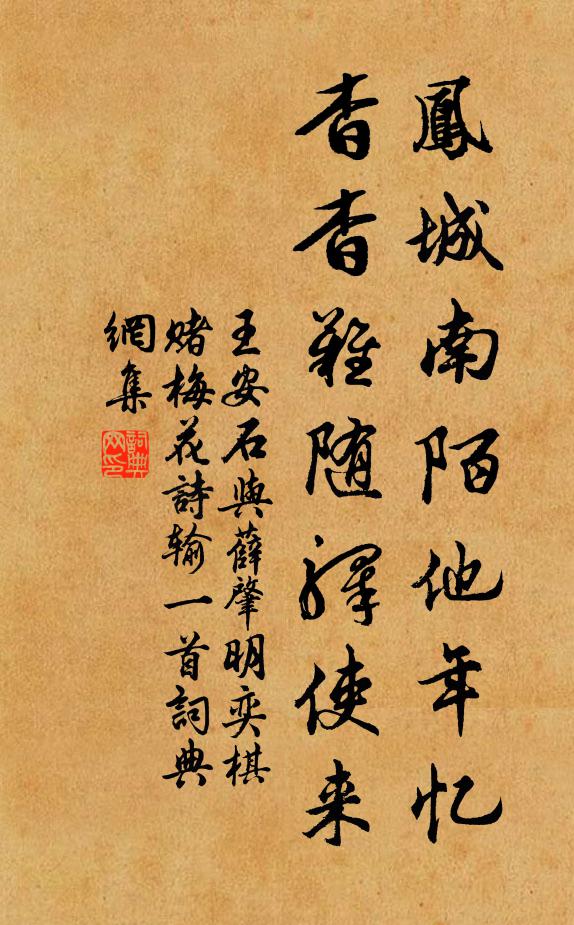 鳳城南陌他年忆
杳杳難随驛使来
王安石與薛肇明奕棋
赌梅花詩输一首詞典
網集
詞典
网印